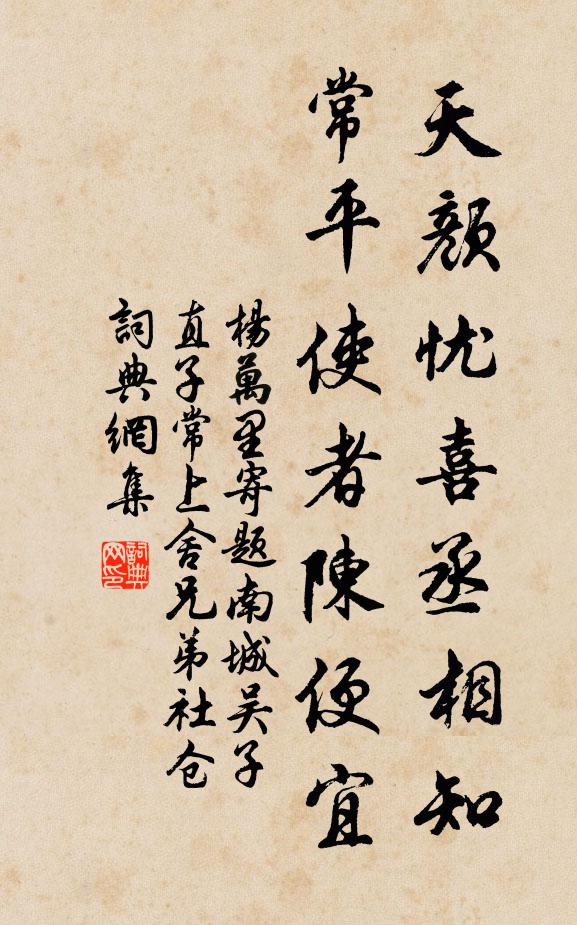 天颜忧喜丞相知
常平使者陳便宜
楊萬里寄题南城吴子
直子常上舍兄弟社仓
詞典網集
詞典网印